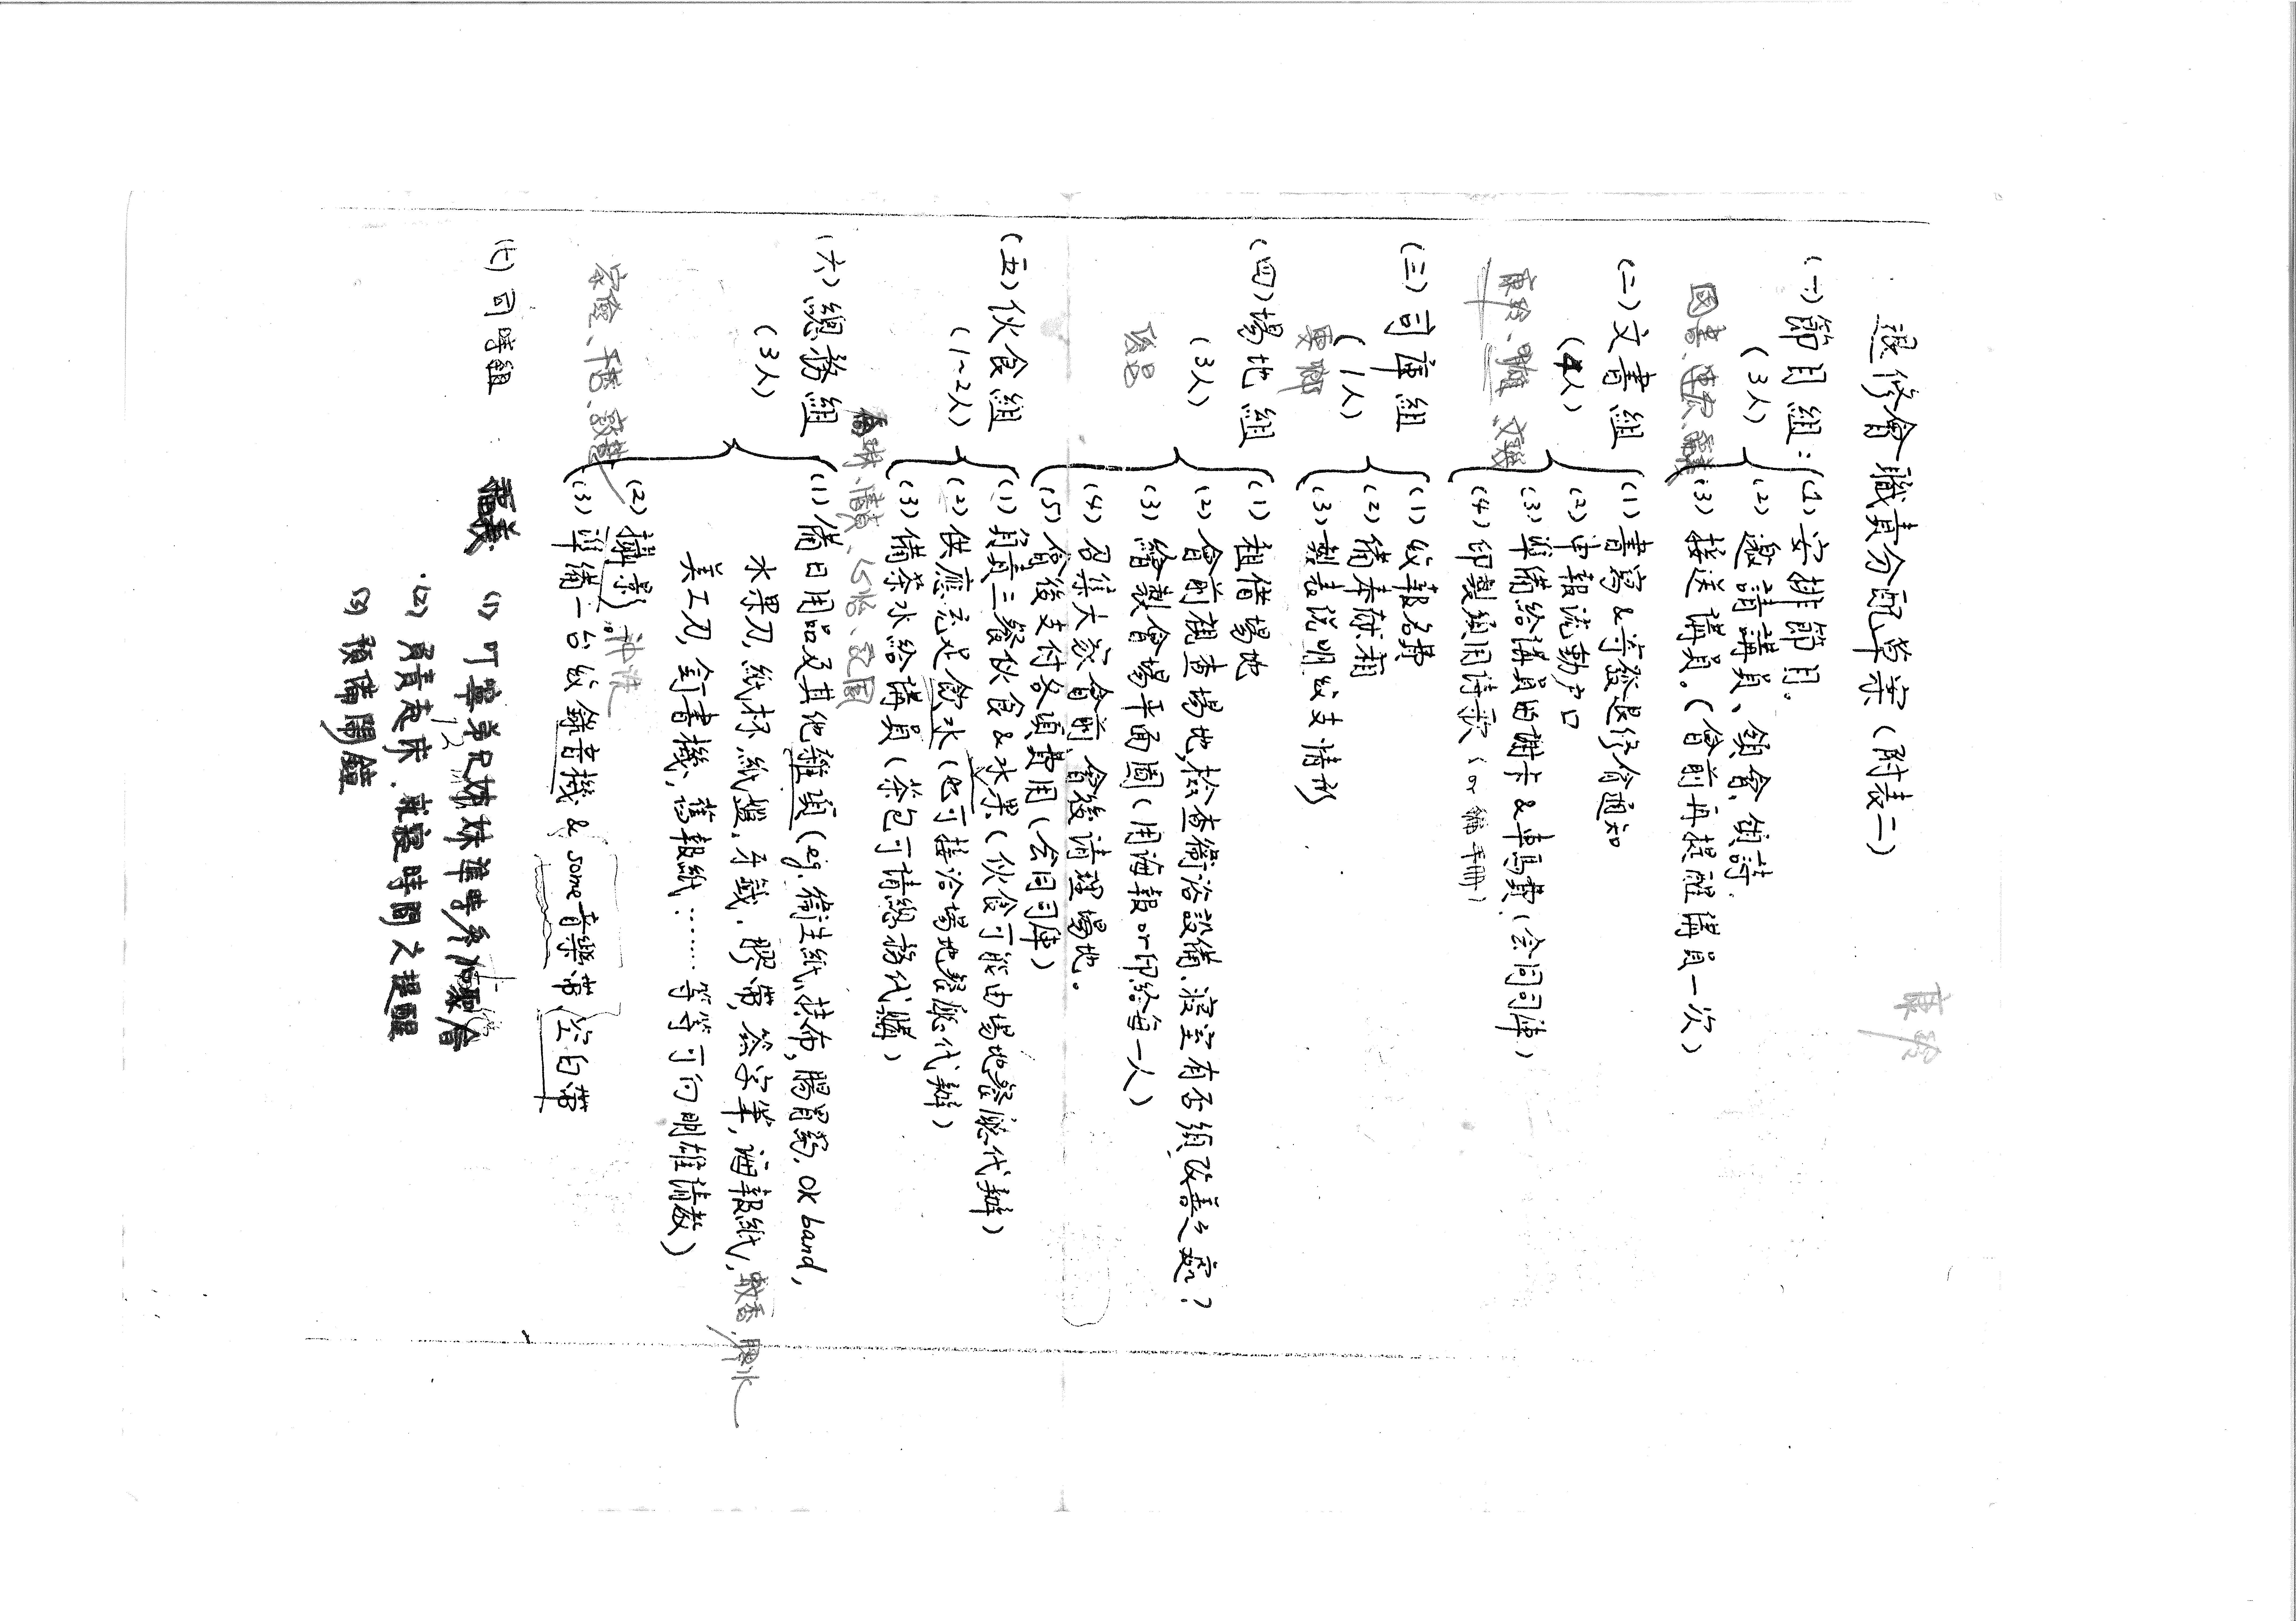 退修會職責分配草案（附表二）
(一)節目組：(1)安排節目.
(3人) (2)邀請講員、領會、領詩.
(3)接送講員.(會前再提醒講員一次)
(二)文書組 (1)書寫&寄發退修會通知
(4人) (2)申報流動戶口
(3)準備給講員的謝卡&車馬費(会同司庫)
(4)印製須用詩歌(or編手冊)
(三)司庫組 (1)收報名費
(1人) (2)備奉献箱
(3)製表說明收支情形
(四)場地組 (1)租借場地
(3人) (2)會前視查場地,檢查衛浴設備、寢室有否須改善之處?
(3)繪製會場平面圖(用海報or印給每一人)
(4)召集大家會前會後清理場地.
(5)會後支付各項費用(会同司庫)
(五)伙食組 (1)負責三餐伙食&水果(伙食可能由場地餐廳代辦)
(1~2人) (2)供應充足飲水(也可接洽場地餐廳代辦)
(3)備茶水給講員(茶包可請總務代購)
(六)總務組 (1)備日用品及其他雜項(eg.衛生紙,抹布,腸胃葯,OK band,
(3人) 水果刀,紙杯紙盤,牙籤,膠帶,簽字筆,海報紙,蚊香,膠水
美工刀,釘書機,舊報紙……等等可向明雄請教)
(2)攝影.沖洗
(3)準備一台收錄音機&some音樂帶 空白帶
(七)司時組 (1)叮嚀弟兄姊妹準時参加聚會
(2)負責起床、就寢時間之提醒
(3)預備鬧鐘